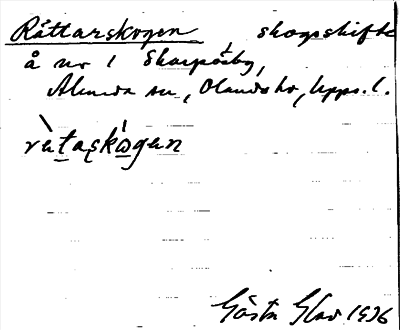 Råttarskogen, skogsskifte
å nr 1 Skarpåsby,
Alunda sn, Olands hd, Upps. l.
rätaskωgen
Gösta Glad 1936